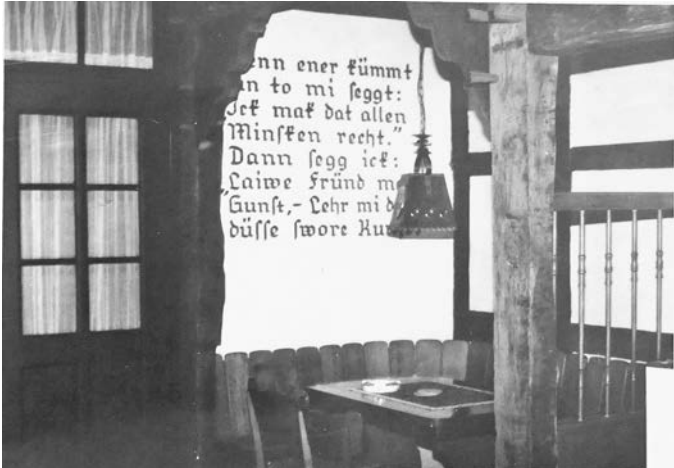 enn ener kümmt
to mi seggt:
Ick mak dat allen
Minsken recht."
Dann segg ick:
„Laiwe Fründ
Gunst,- Lehr mi
düsse swore